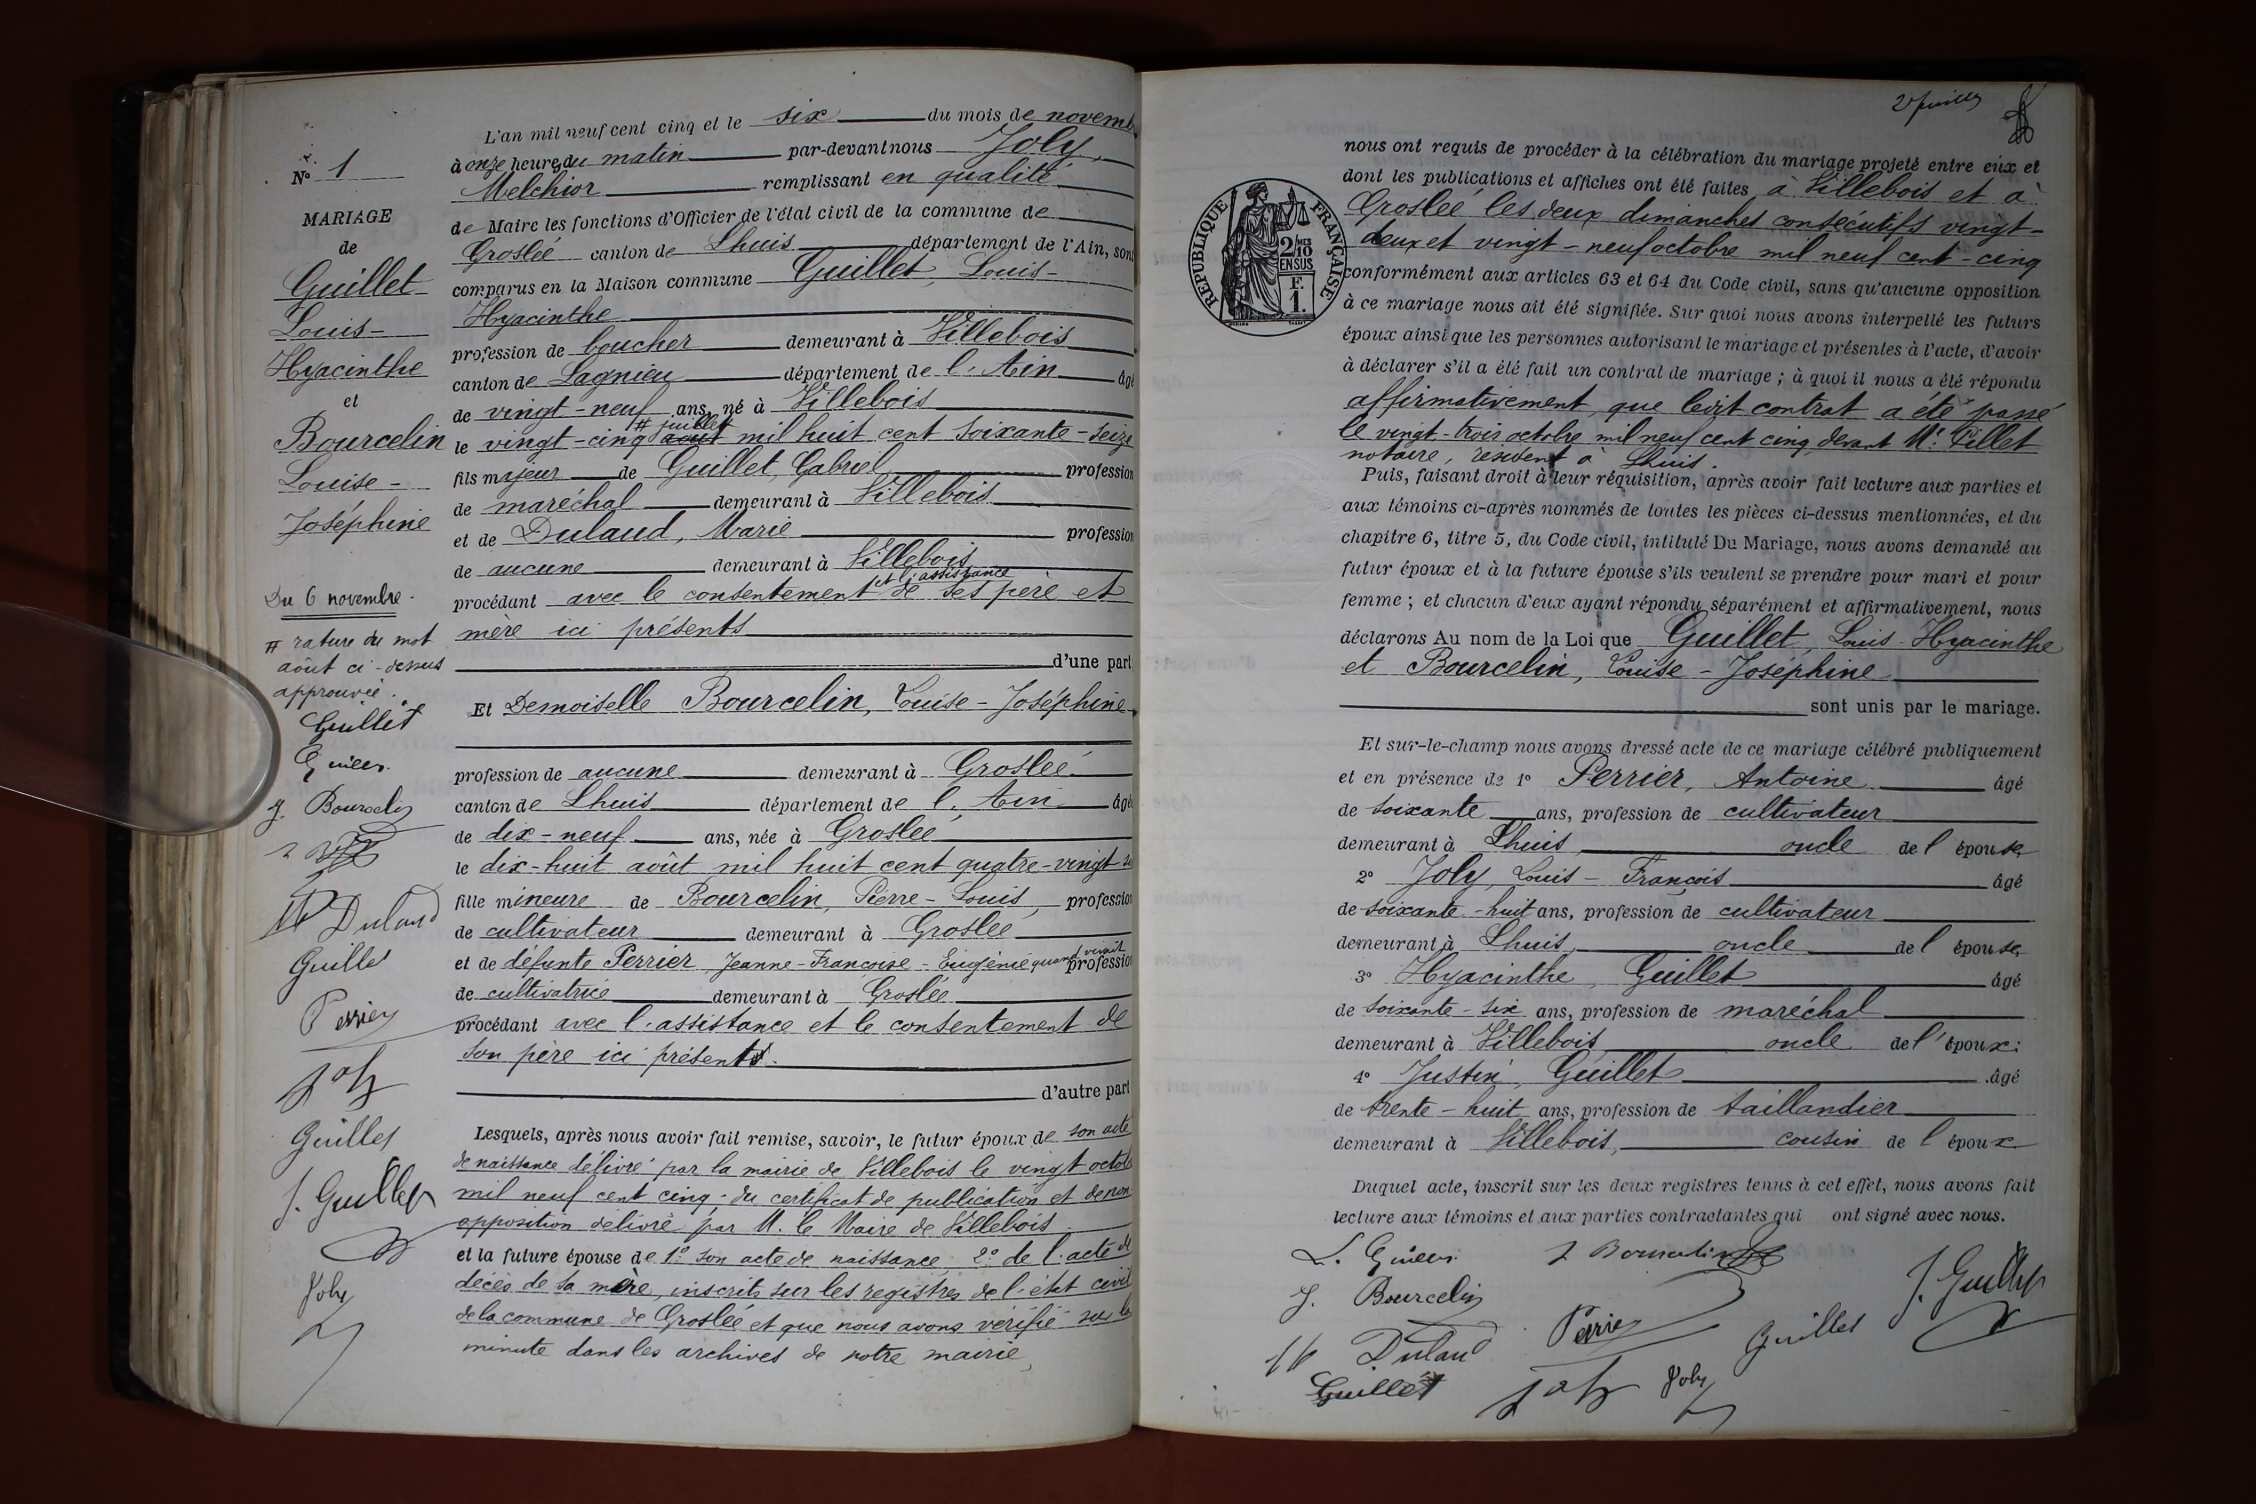 L'an mil neuf cent cinq et le six du mois de novemb
à onze heures du matin par-devant nous Joly,
Melchior remplissant en qualité
de Maire les fonctions d'Officier de l'état civil de la commune de
Groslée canton de Lhuis département de l'Ain, sont
comparus en la Maison commune Guillet, Louis-
Hyacinthe
profession de boucher demeurant à Villebois
canton de Lagnieu département de l'Ain âgé
de vingt-neuf ans, né à Villebois
# juillet
le vingt-cinq août mil huit cent soixante-seize
fils majeur de Guillet, Gabriel profession
de maréchal demeurant à Villebois
et de Dulaud, Marie profession
de aucune demeurant à Villebois
et l'assistance
procédant avec le consentement de ses père et
mère ici présents
d'une part
Et Demoiselle Bourcelin, Louise-Joséphine
profession de aucune demeurant à Groslée
canton de Lhuis département de l'Ain âgé
de dix-neuf ans, née à Groslée
le dix-huit août mil huit cent quatre-vingt-
fille mineure de Bourcelin, Pierre-Louis, profession
de cultivateur demeurant à Groslée
et de défunte Perrier Jeanne-Françoise-Eugénie quand vivait profession
de cultivatrice demeurant à Groslée
procédant avec l'assistance et le consentement de
son père ici présent.
d'autre part
Lesquels, après nous avoir fait remise, savoir, le futur époux de son acte
de naissance délivré par la mairie de Villebois le vingt octob
mil neuf cent cinq; du certificat de publication et de non
opposition délivré par M. le Maire de Villebois
et la future épouse de 1° son acte de naissance, 2° de l'acte de
décès de sa mère, inscrits sur les registres de l'état civil
de la commune de Groslée et que nous avons vérifié sur la
minute dans les archives de notre mairie,
N° 1
MARIAGE
de
Guillet
Louis-
Hyacinthe
et
Bourcelin
Louise-
Joséphine
Du 6 novembre.
# rature du mot
août ci-dessus
approuvée.
Guillet
J. Bourcelin
M Dulaud
Guillet
Perrier
Joly
Guillet
J. Guillet
Joly
2e feuillet
RÉPUBLIQUE FRANÇAISE
2/10 MES
EN SUS
F.
1.
nous ont requis de procéder à la célébration du mariage projeté entre eux et
dont les publications et affiches ont été faites à Villebois et à
Groslée les deux dimanches consécutifs vingt-
deux et vingt-neuf octobre mil neuf cent-cinq
conformément aux articles 63 et 64 du Code civil, sans qu'aucune opposition
à ce mariage nous ait été signifiée. Sur quoi nous avons interpellé les futurs
époux ainsi que les personnes autorisant le mariage et présentes à l'acte, d'avoir
à déclarer s'il a été fait un contrat de mariage; à quoi il nous a été répondu
affirmativement, que ledit contrat a été passé
le vingt-trois octobre mil neuf cent cinq, devant Me Pillet
notaire, résident à Lhuis.
Puis, faisant droit à leur réquisition, après avoir fait lecture aux parties et
aux témoins ci-après nommés de toutes les pièces ci-dessus mentionnées, et du
chapitre 6, titre 5, du Code civil, intitulé Du Mariage, nous avons demandé au
futur époux et à la future épouse s'ils veulent se prendre pour mari et pour
femme; et chacun d'eux ayant répondu séparément et affirmativement, nous
déclarons Au nom de la Loi que Guillet, Louis-Hyacinthe
et Bourcelin, Louise-Joséphine
sont unis par le mariage.
Et sur-le-champ nous avons dressé acte de ce mariage célébré publiquement
et en présence de 1° Perrier, Antoine âgé
de soixante ans, profession de cultivateur
demeurant à Lhuis, oncle de l'épouse,
2° Joly, Louis-François âgé
de soixante-huit ans, profession de cultivateur
demeurant à Lhuis, oncle de l'épouse,
3° Hyacinthe, Guillet âgé
de soixante-six ans, profession de maréchal
demeurant à Villebois oncle de l'époux;
4° Justin, Guillet âgé
de trente-huit ans, profession de taillandier
demeurant à Villebois, cousin de l'époux
Duquel acte, inscrit sur les deux registres tenus à cet effet, nous avons fait
lecture aux témoins et aux parties contractantes qui ont signé avec nous.
L. Guillet
J. Bourcelin
Dulaud
Guillet
Perrier
Joly
Joly
Guillet
J. Guillet